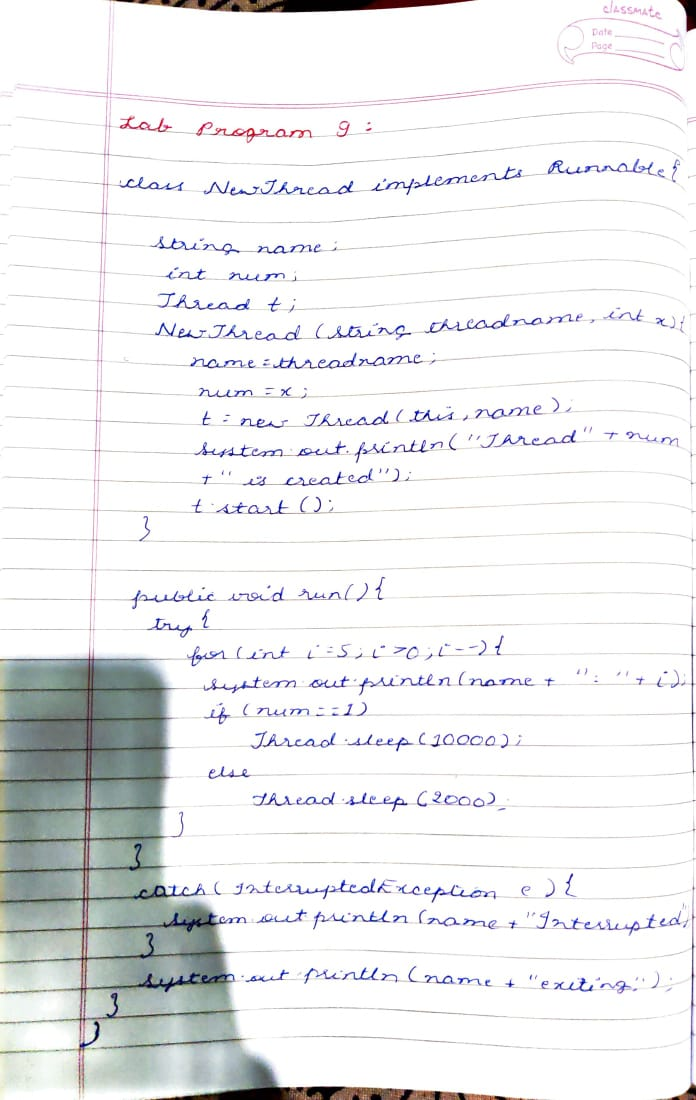 classmate
Date
Page
Lab Program 9 :
class NewThread implements Runnable {
string name ;
int num ;
Thread t ;
NewThread ( string threadname, int x) {
name = threadname ;
num = x ;
t = new Thread ( this, name ) ;
system.out.println ( "Thread" + num
+ " is created" ) ;
t.start () ;
}
public void run() {
try {
for ( int i=5 ; i>0 ; i--) {
system.out.println ( name + " : " + i ) ;
if ( num==1 )
Thread.sleep ( 10000 ) ;
else
Thread.sleep ( 2000 ) ;
}
}
catch ( InterruptedException e ) {
system.out.println ( name + "Interrupted
}
system.out.println ( name + "exiting." ) ;
}
}